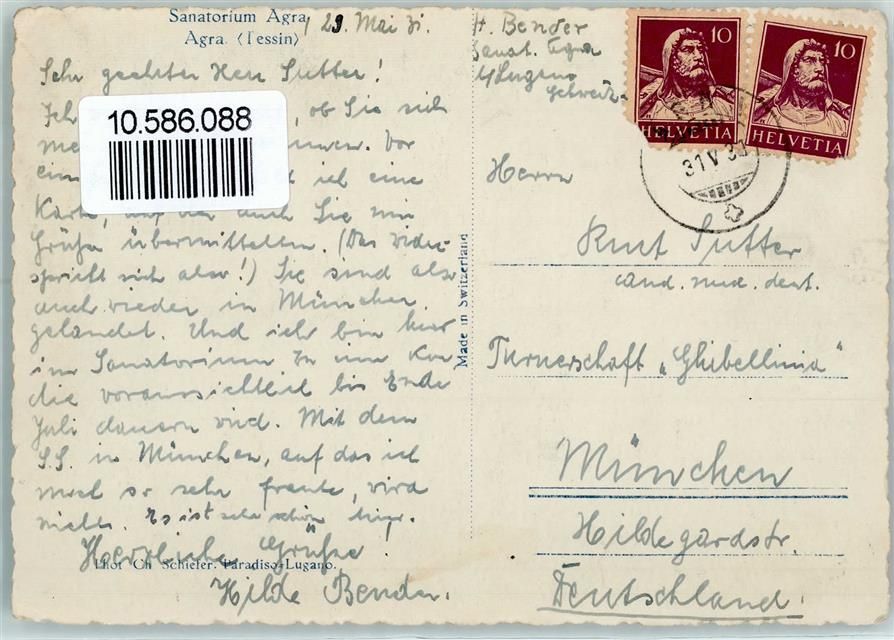 Sanatorium Agra
Agra. (Tessin)
29. Mai 31.
Sehr geehrter Herr Sutter!
Ich ob Sie sich
Vor
ich eine
Karte, auch Sie
Grüße übermittelten. (Das wider-
spricht sich aber!) Sie sind also
auch wieder in München
gelandet. Und ich bin hier
im Sanatorium zu
die voraussichtlich bis Ende
Juli dauern wird. Mit dem
S.S. in München, auf das ich
mich so sehr freute, wird
nichts. Es ist sehr schön hier.
Herzliche Grüße!
Hilde Bender.
Phot Ch Schiefer. Paradiso-Lugano.
10.586.088
Made in Switzerland
H. Bender
Sanat. Agra
b/Lugano
Schweiz
10
HELVETIA
10
HELVETIA
31 V 31
Herrn
Kurt Sutter
cand. med. dent.
Turnerschaft „Ghibellinia"
München
Hildegardstr.
Deutschland.